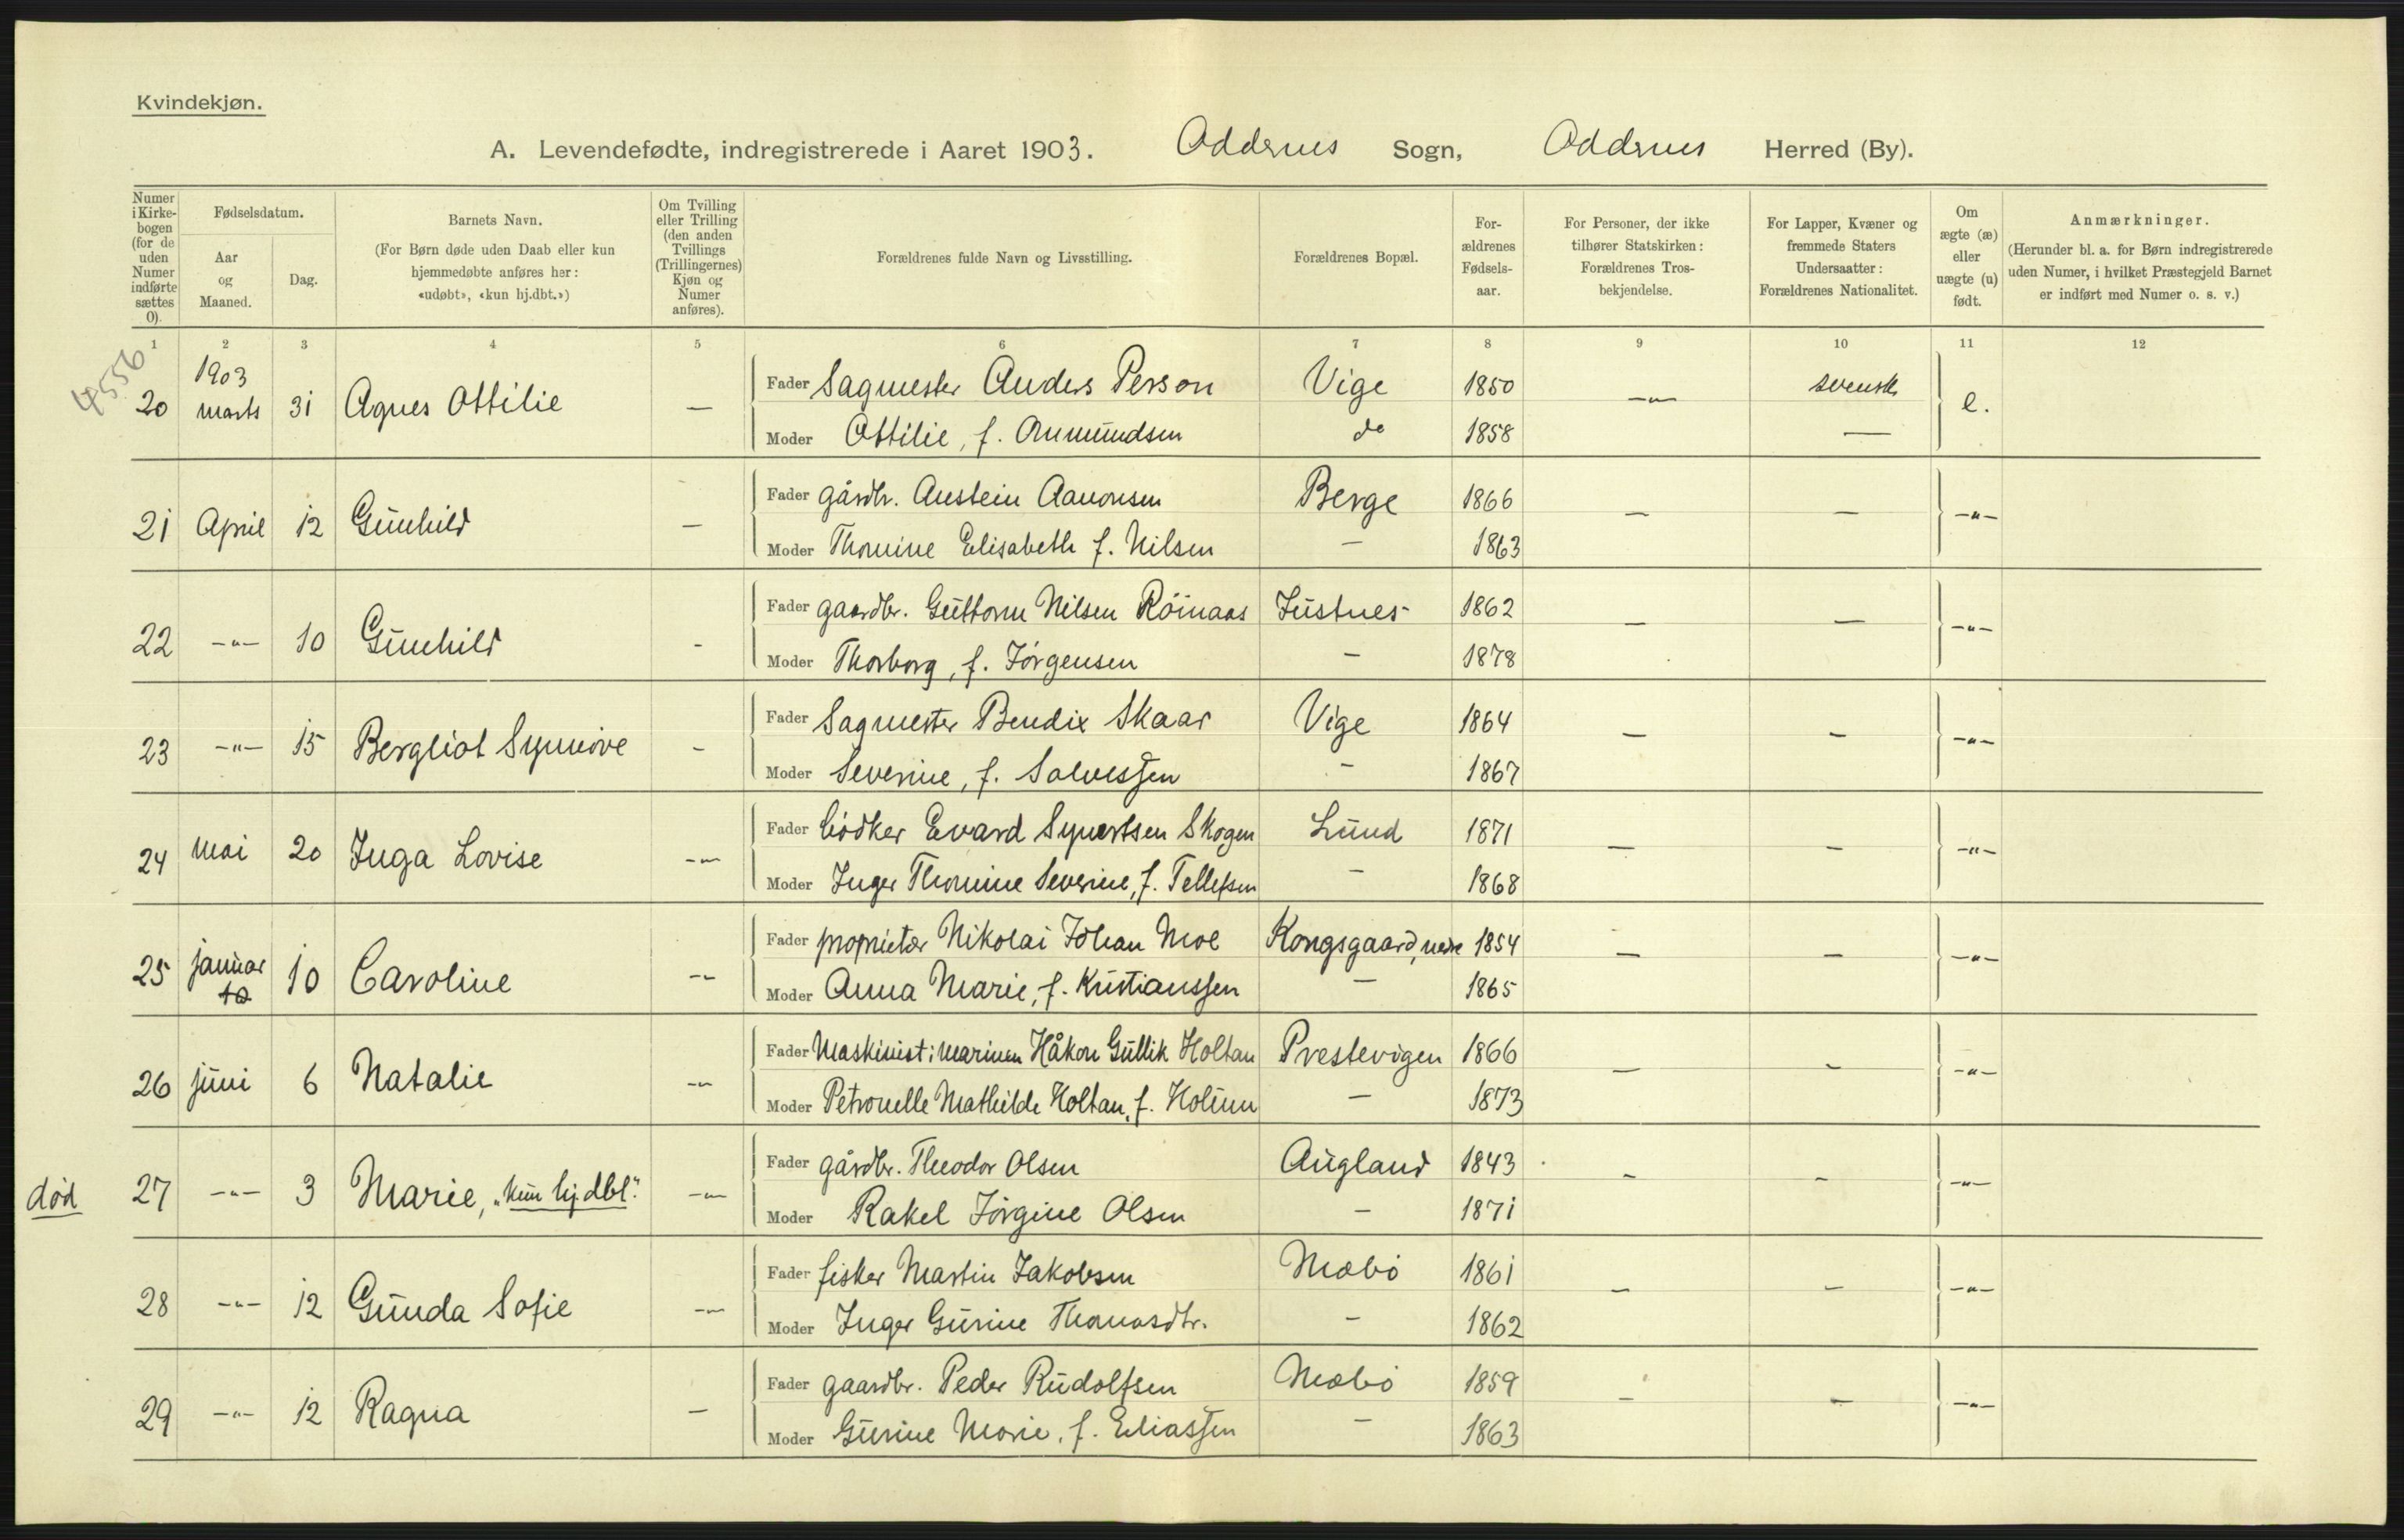 Kvindekjøn.
A. Levendefødte, indregistrerede i Aaret 1903. Oddernes Sogn, Oddernes Herred (By).
Numer i Kirkebogen (for de uden Numer indførte sættes 0). | Fødselsdatum. Aar og Maaned. | Dag. | Barnets Navn. (For Børn døde uden Daab eller kun hjemmedøbte anføres her: «udøbt», «kun hj.dbt.») | Om Tvilling eller Trilling (den anden Tvillings (Trillingernes) Kjøn og Numer anføres). | Forældrenes fulde Navn og Livsstilling. | Forældrenes Bopæl. | Forældrenes Fødselsaar. | For Personer, der ikke tilhører Statskirken: Forældrenes Trosbekjendelse. | For Lapper, Kvæner og fremmede Staters Undersaatter: Forældrenes Nationalitet. | Om ægte (æ) eller uægte (u) født. | Anmærkninger. (Herunder bl. a. for Børn indregistrerede uden Numer, i hvilket Præstegjeld Barnet er indført med Numer o. s. v.)
1 2 3 4 5 6 7 8 9 10 11 12
4556
20 1903 marts 31 Agnes Ottilie — Fader Sagmester Anders Person Vige 1850 —"— svensk e.
Moder Ottilie, f. Anmundsen do 1858 —
21 April 12 Gunhild — Fader gårdbr. Austein Aanonsen Berge 1866 — — —"—
Moder Thomine Elisabeth f. Nilsen — 1863
22 —"— 10 Gunhild - Fader gaardbr. Guttorm Nilsen Röinaas Justnes 1862 — — —"—
Moder Thorborg, f. Jörgensen — 1878
23 —"— 15 Bergliot Synnöve - Fader Sagmester Bendix Skaar Vige 1864 — — —"—
Moder Severine, f. Salvessen — 1867
24 mai 20 Inga Lovise —"— Fader bödker Evard Syvertsen Skogen Lund 1871 — — —"—
Moder Inger Thomine Severine, f. Tellefsen — 1868
25 januar 10 10 Caroline —"— Fader proprietær Nikolai Johan Moe Kongsgaard, nedre 1854 — — —"—
Moder Anna Marie, f. Kristianssen — 1865
26 juni 6 Natalie —"— Fader Maskinist i marinen Håkon Gullik Holtan Prestevigen 1866 — — —"—
Moder Petronelle Mathilde Holtan, f. Holum — 1873
død 27 —"— 3 Marie, „kun hj.dbt." —"— Fader gårdbr. Theodor Olsen Augland 1843 — — —"—
Moder Rakel Jörgine Olsen — 1871
28 —"— 12 Gunda Sofie —"— Fader fisker Martin Jakobsen Mæbö 1861 — — —"—
Moder Inger Gurine Thomasdtr. — 1862
29 —"— 12 Ragna — Fader gaardbr. Peder Rudolfsen Mæbö 1859 — — —"—
Moder Gurine Marie, f. Eliassen — 1863